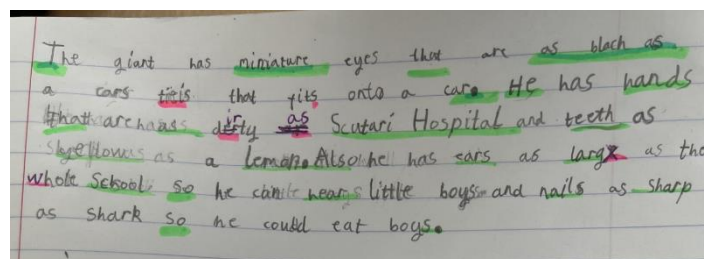 The giant has miniature eyes that are as black as
a cars that fits onto a car. He has hands
that are as dirty as Scutari Hospital and teeth as
as a lemon. Also he has ears as large as the
whole School so he can hear little boys and nails as sharp
as shark so he could eat boys.